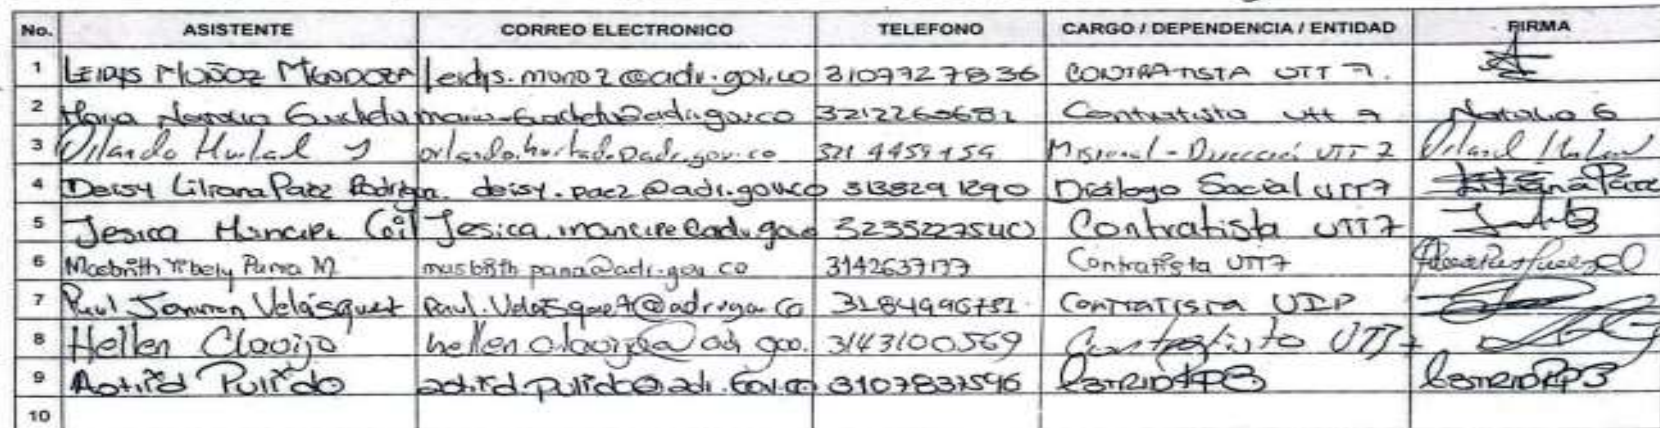 No. ASISTENTE CORREO ELECTRONICO TELEFONO CARGO / DEPENDENCIA / ENTIDAD FIRMA
1 LEIDYS MUÑOZ MENDOZA leidys.monoz@adr.gov.co 3107927836 CONTRATISTA UTT 7.
2 Maria Natalia 3212260682 Contratista utt 7 Natalia G
3 Orlando Hurtado orlando.hurtado@adr.gov.co 321 4459459 Misional - Dirección UTT 7
4 Deisy Liliana Paez Rodrigu. deisy.paez@adr.gov.co 3138291290 Diálogo Social UTT7 Liliana Paez
5 Jesica Mancipe Gil Jesica.mancipe@adr.gov 3235227540 Contratista UTT7
6 Yibely Parra M. 3142637177 Contratista UTT7
7 Paul Velásquez Paul.Velasquez@adr.gov.co 3184996781 Contratista
8 Hellen Clavijo hellen.clavijo@adr.gov. 3143100569 Contratista UTT7
9 Astrid Pulido astrid.pulido@adr.gov.co 3107837596
10